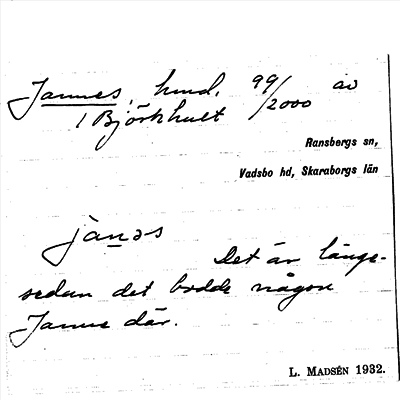 Jannes, hmd. 99/2000 av
1 Björkhult
Ransbergs sn,
Vadsbo hd, Skaraborgs län
janəs
Det är länge-
sedan det bodde någon
Janne där.
L. MADSÉN 1932.